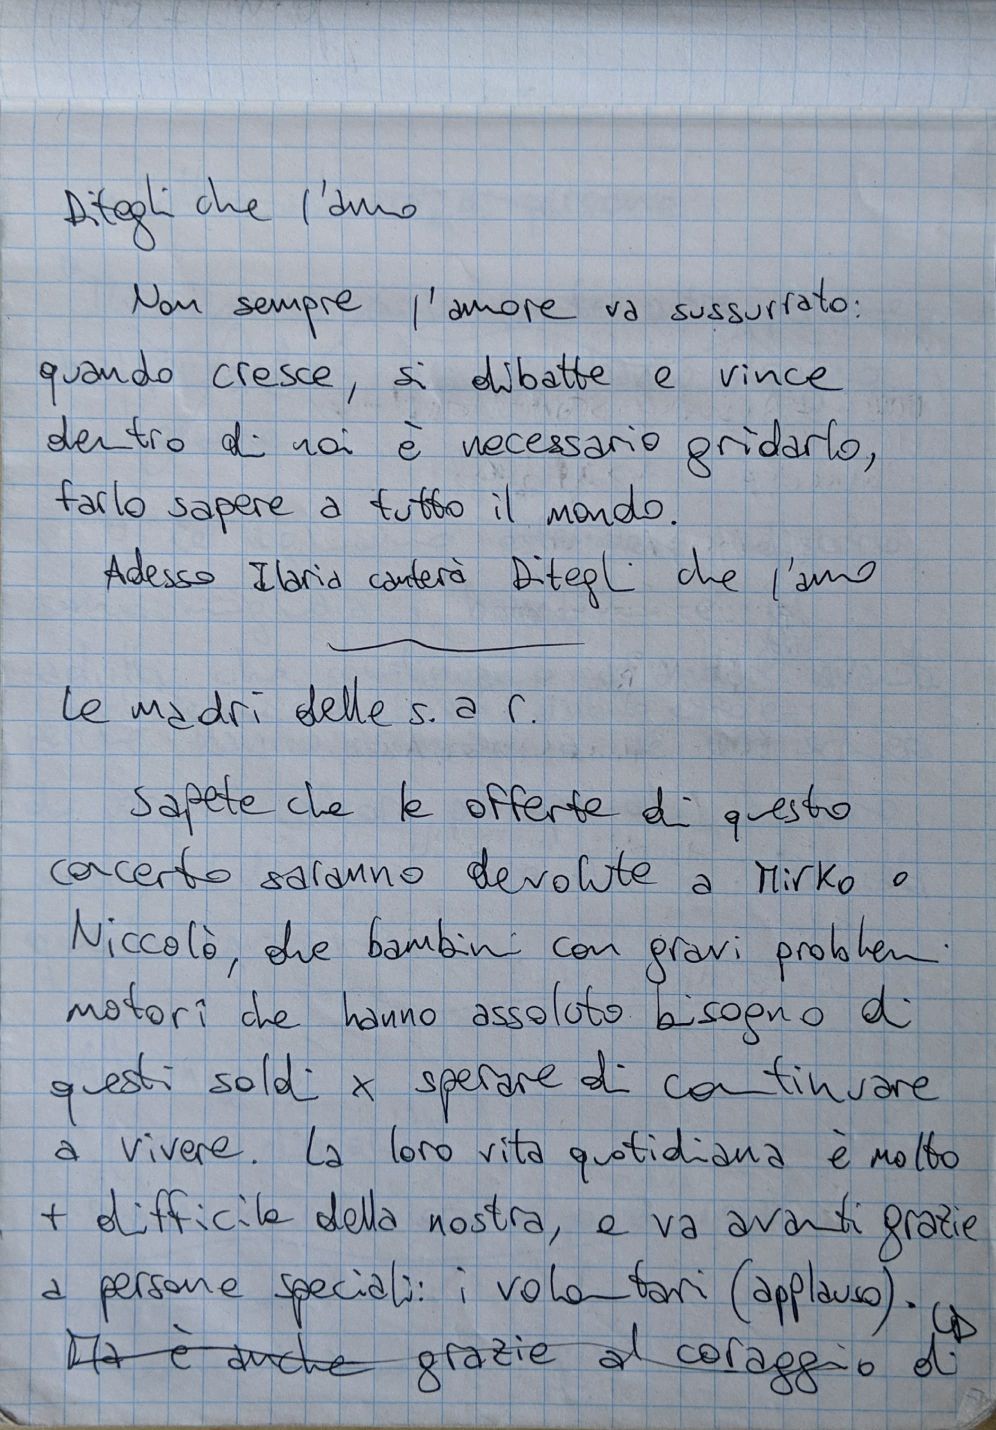 Ditegli che l'amo
Non sempre l'amore va sussurrato:
quando cresce, si dibatte e vince
dentro di noi è necessario gridarlo,
farlo sapere a tutto il mondo.
Adesso Ilaria canterà Ditegli che l'amo
Le madri delle s. a r.
Sapete che le offerte di questo
concerto saranno devolute a Mirko e
Niccolò, due bambini con gravi problemi
motori che hanno assoluto bisogno di
questi soldi x sperare di continuare
a vivere. La loro vita quotidiana è molto
+ difficile della nostra, e va avanti grazie
a persone speciali: i volontari (applauso).
Ma è anche grazie al coraggio di